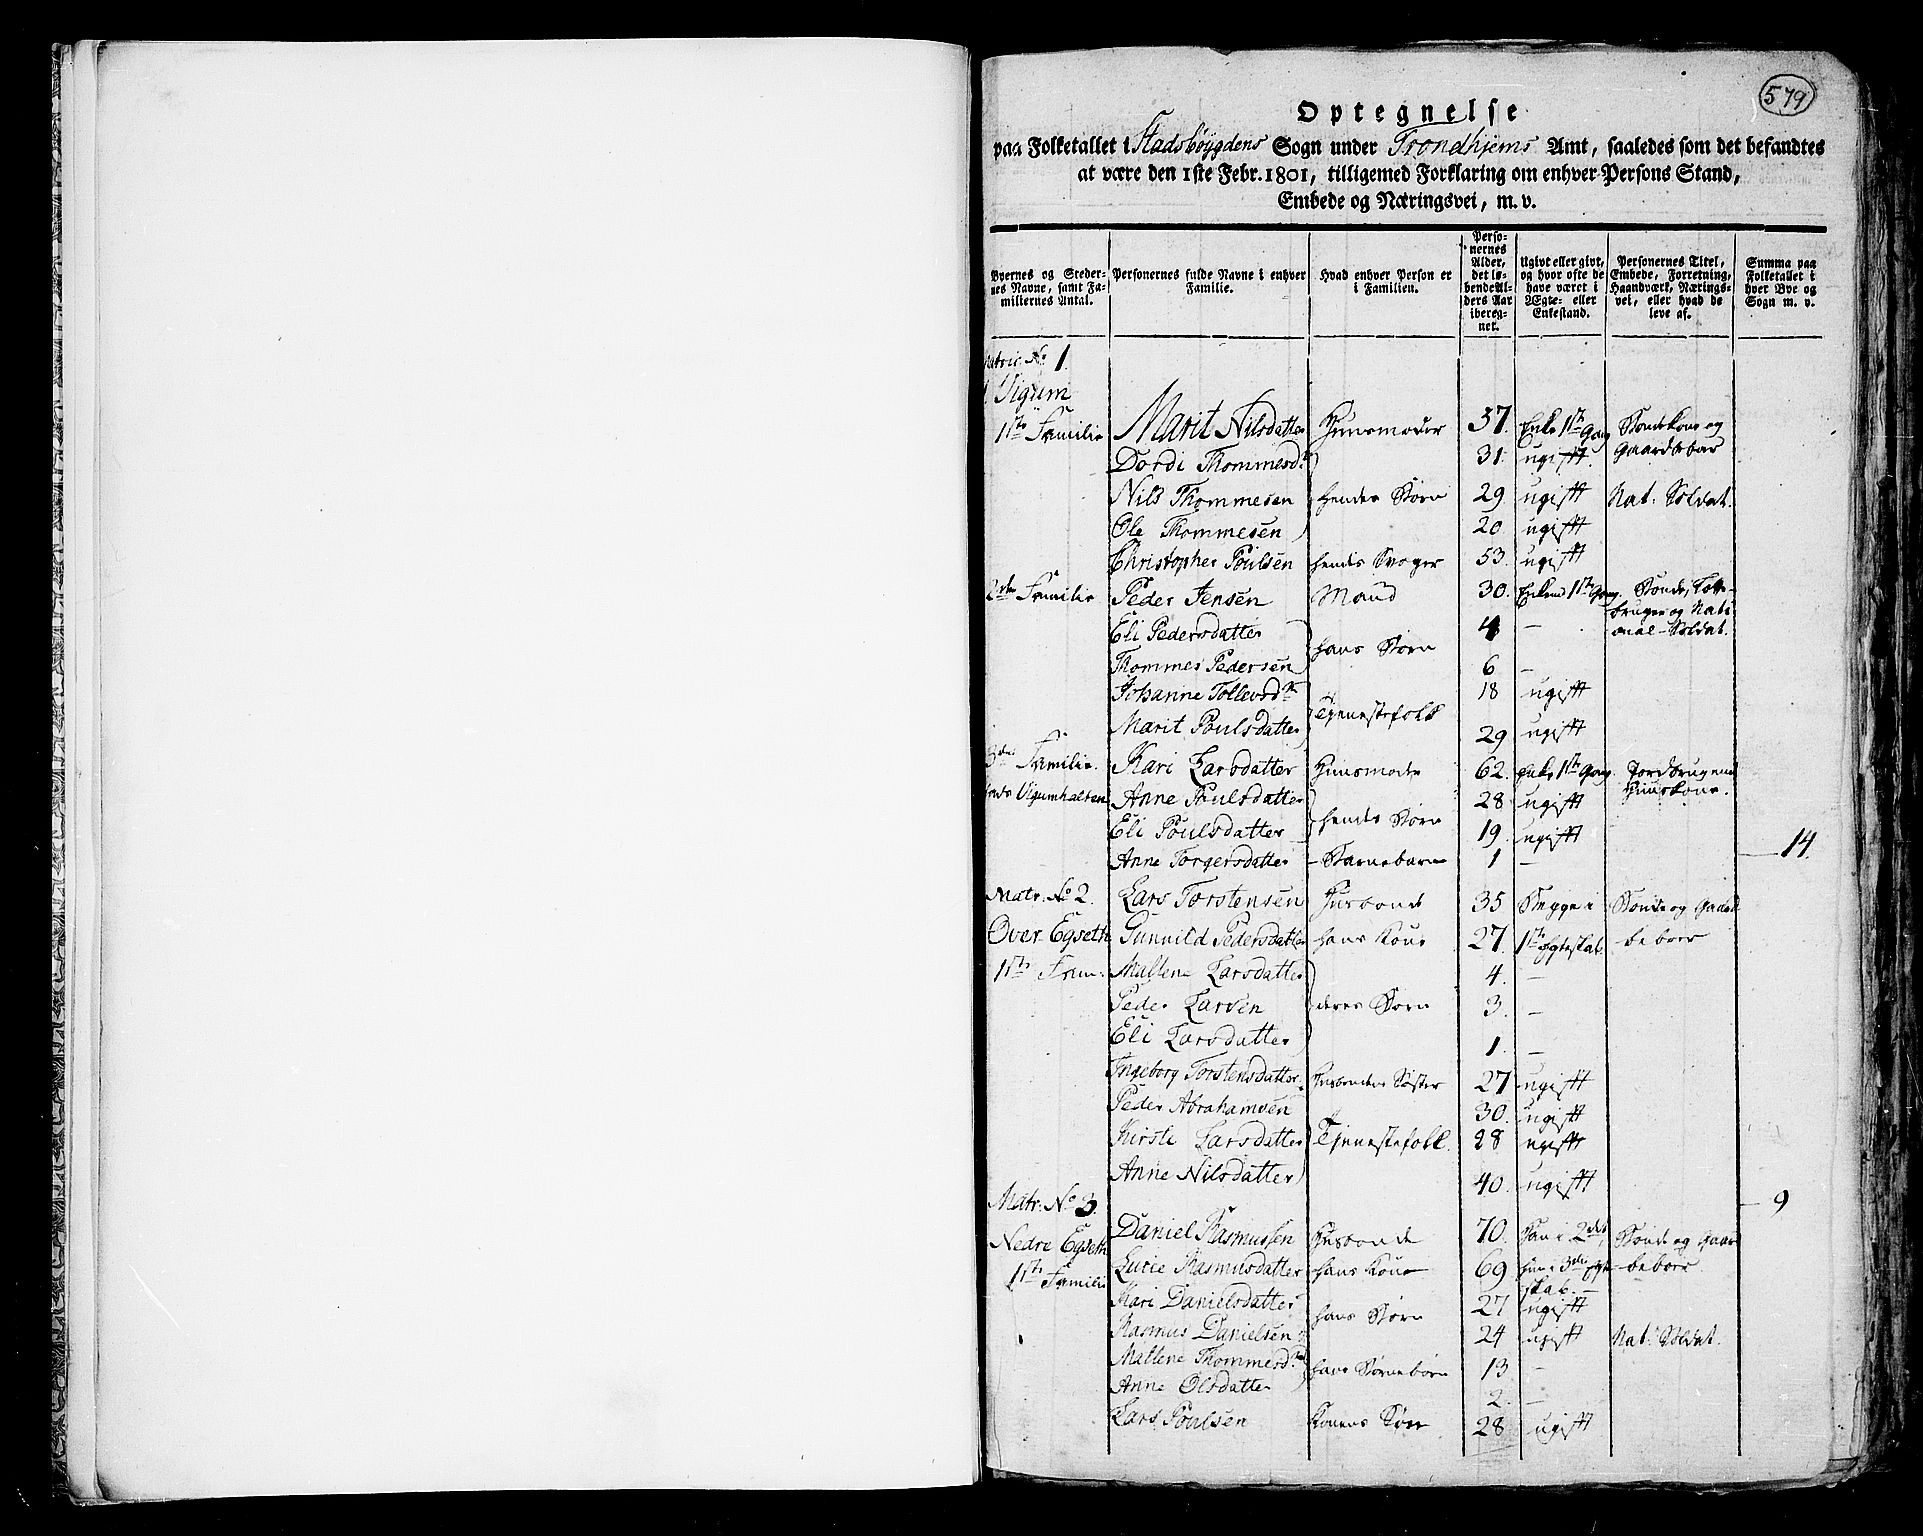 579
Optegnelse
paa Folketallet i Stadsböygdens Sogn under Trondhjems Amt, saaledes som det befandtes
at være den 1ste Febr. 1801, tilligemed Forklaring om enhver Persons Stand,
Embede og Næringsvei, m. v.
Byernes og Stedernes Navne, samt Familiernes Antal.
Personernes fulde Navne i enhver Familie.
Hvad enhver Person er i Familien.
Personernes Alder, det løbende Alders Aar iberegnet.
Ugivt eller givt, og hvor ofte de have været i Ægte- eller Enkestand.
Personernes Titel, Embede, Forretning, Haandværk, Næringsvei, eller hvad de leve af.
Summa paa Folketallet i hver Bye og Sogn m. v.
Matric. No 1.
Vigum
1ste Familie Marit Nilsdatter Huusmoder 37. Enke 1ste Gang Bondekone og Gaardbebor
Dordi Thommesdtr 31. ugift.
Nils Thommesen hendes Börn 29 ugift Nat: Soldat.
Ole Thommesen 20 ugift
Christopher Poulsen hendes Svoger 53. ugift
2den Familie Peder Jensen Mand 30. Enkem 1ste Gang. Bonde, bruger og National-Soldat.
Eli Pedersdatter 4 —
hans Börn
Thommes Pedersen 6 —
Johanne Tollevsdtr 18 ugift
Tjenestefolk
Marit Poulsdatter 29 ugift
3die Familie. Kari Larsdatter Huusmoder 62. Enke 1ste Gang. Jordbrugende Huuskone.
Vigumhalten Anne Poulsdatter 28 ugift
hendes Börn
Eli Poulsdatter 19. ugift
Anne Torgersdatter – Barnebarn 1 —
14.
Matr. No 2. Lars Torstensen Husbonde 35 Begge i Bonde og Gaard
Över Egseth Gunnild Pedersdatter hans Kone 27. 1ste Egteskab. beboer
1ste Fam: Mallene Larsdatter 4. —
Peder Larsen deres Börn 3. —
Eli Larsdatter 1. —
Ingeborg Torstensdatter Husbondens Söster 27 ugift
Peder Abrahamsen 30. ugift
Kirsti Larsdatter Tjenestefolk. 28 ugift
Anne Nilsdatter 40. ugift
9
Matr: No 3.
Nedre Egseth Daniel Rasmussen Husbonde 70. Han i 2det, Bonde og Gaar
1ste Familie Lucie Rasmusdatter hans Kone 69 hun i 3die Egte- beboer
skab. —
Kari Danielsdatter 27 ugift
hans Börn
Rasmus Danielsen 24 ugift Nat: Soldat.
Mallene Thommesdtr 13 —
hans Börnebörn
Anne Olsdatter 2. —
Lars Poulsen Konens Sön 28 ugift